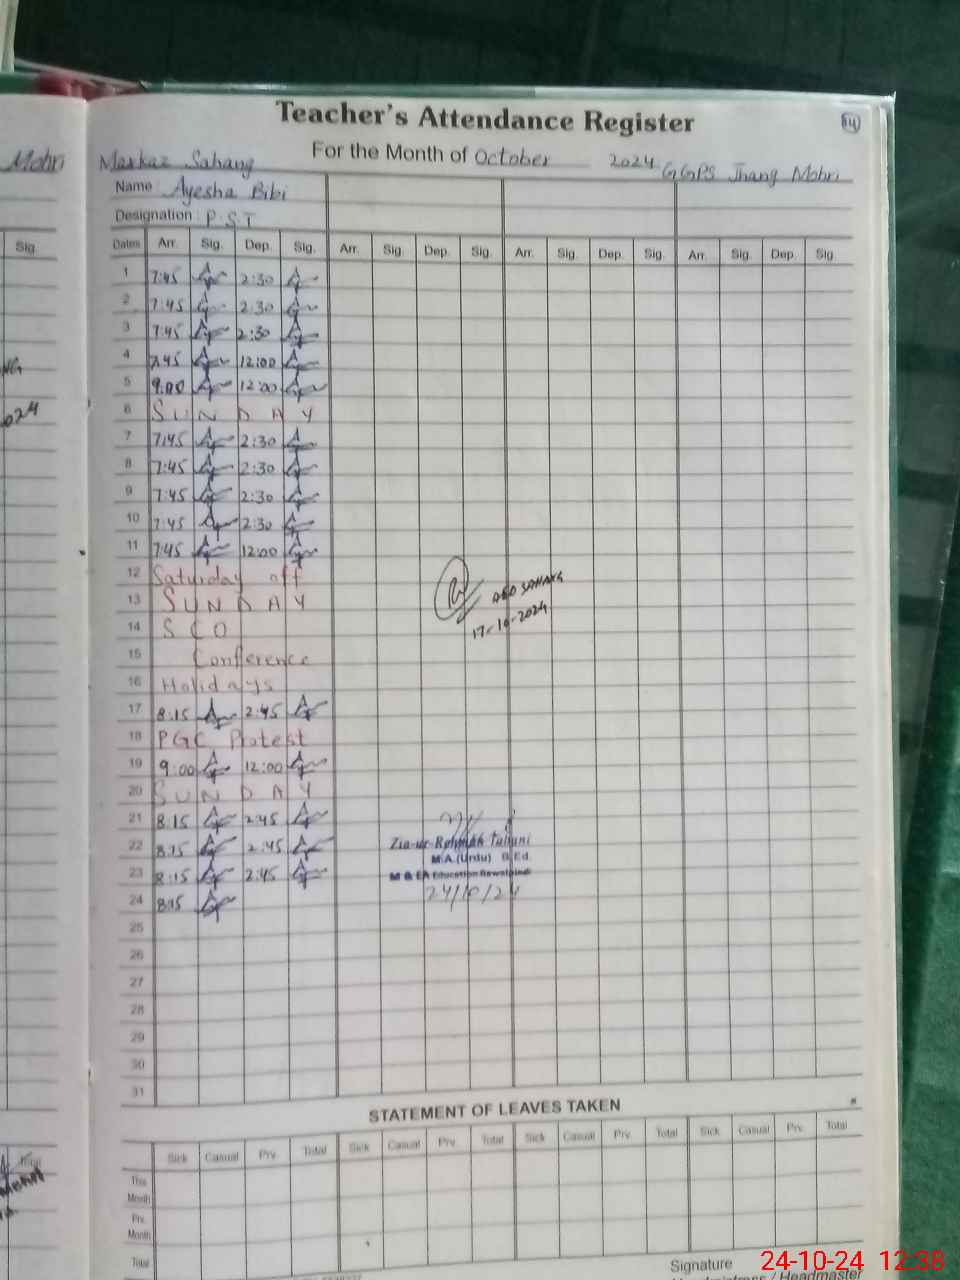 Teacher's Attendance Register
14
For the Month of October 2024
Mohri
Markaz Sahang
GGPS Jhang Mohri
Name Ayesha Bibi
Designation: P S T
Sig.
Dates Arr. Sig. Dep. Sig. Arr. Sig. Dep. Sig. Arr. Sig. Dep. Sig. Arr. Sig. Dep. Sig.
1 7:45 2:30
2 7:45 2:30
3 7:45 2:30
4 7:45 12:00
5 9:00 12:00
6 SUNDAY
7 7:45 2:30
8 7:45 2:30
9 7:45 2:30
10 7:45 2:30
11 7:45 12:00
12 Saturday off
13 SUNDAY
14 SCO
15 Conference
16 Holidays
17 8:15 2:45
18 PGC Protest
19 9:00 12:00
20 SUNDAY
21 8:15 2:45
22 8:15 2:45
23 8:15 2:45
24 8:15
25
26
27
28
29
30
31
AEO SAHANG
17-10-2024
Zia-ur-Rehman
M.A.(Urdu) B.Ed.
M & EA Education Rawalpindi
24/10/24
STATEMENT OF LEAVES TAKEN
Sick Casual Prv. Total Sick Casual Prv. Total Sick Casual Prv. Total Sick Casual Prv. Total
This
Month
Prv.
Month
Total
Signature
Headmistress / Headmaster
24-10-24 12:38